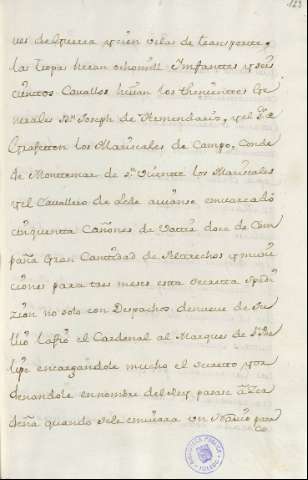 ves de Guerra y cien velas de transporte,
las tropas heran ochomill Infantes y seis
cientos Cavallos, heran los thenientes Ge
nerales Dn. Joseph de Armendariz, y el
Grafeton los Mariscales de Campo, Conde
de Montemar de Sn. Vicente los Mariscales
y el Cavallero de dede avianse embarcado
cinquentta Cañones de Vattir doce de Cam
paña Gran Cantidad de Pertrechos y muni
ciones para tres meses esta secretta Spedi
zión no solo con Despachos denueve de Ju
lio la fió el Cardenal al Marques de Sn. Phe
lipe encargandole mucho el secretto y or
denandole en nombre del Rey pasase a Zer
deña quando sele embiara un Navio para
BIBLIOTECA PUBLICA
TOLEDO